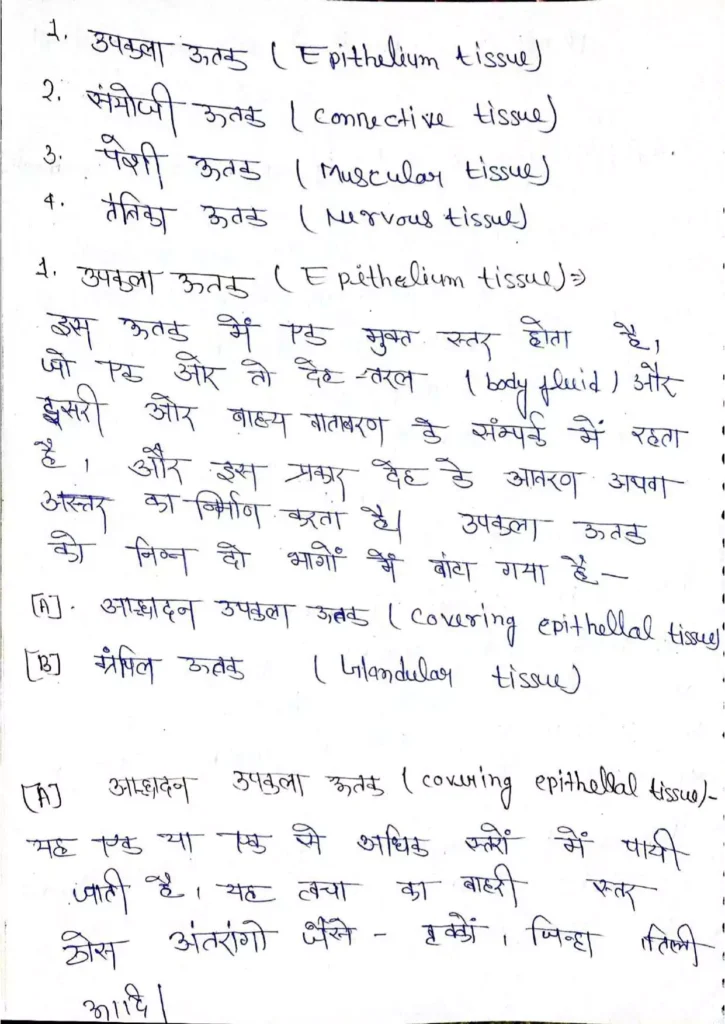 1. उपकला ऊतक ( Epithelium tissue)
2. संयोजी ऊतक ( connective tissue)
3. पेशी ऊतक ( Muscular tissue)
4. तंत्रिका ऊतक ( Nervous tissue)
1. उपकला ऊतक ( Epithelium tissue)⇒
इस ऊतक में एक मुक्त स्तर होता है,
जो एक ओर तो देह-तरल (body fluid) और
दूसरी ओर बाह्य वातावरण के संम्पर्क में रहता
है, और इस प्रकार देह के आवरण अथवा
अस्तर का निर्माण करता है। उपकला ऊतक
को निम्न दो भागों में बांटा गया है –
[A]. आच्छादन उपकला ऊतक ( covering epithellal tissue)
[B] ग्रंथिल ऊतक ( Glandular tissue)
[A] आच्छादन उपकला ऊतक ( covering epithellal tissue)-
यह एक या एक से अधिक स्तरों में पायी
जाती है, यह त्वचा का बाहरी स्तर
ठोस अंतरांगो जैसे – वृक्कों, जिन्हा तिल्ली
आदि|